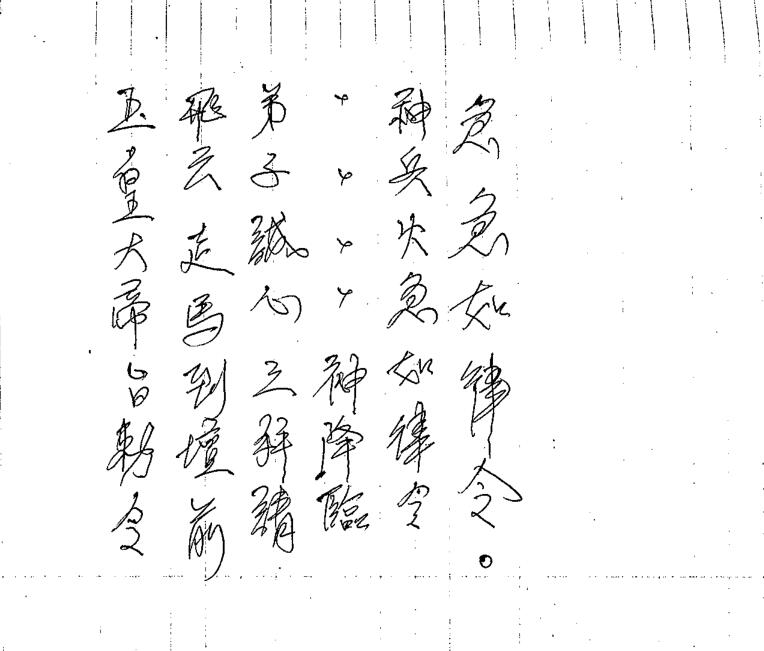 玉皇大帝旨勅令
飛云走馬到壇前
弟子誠心三拜請
〃〃〃〃神降臨
神兵火急如律令
急急如律令。